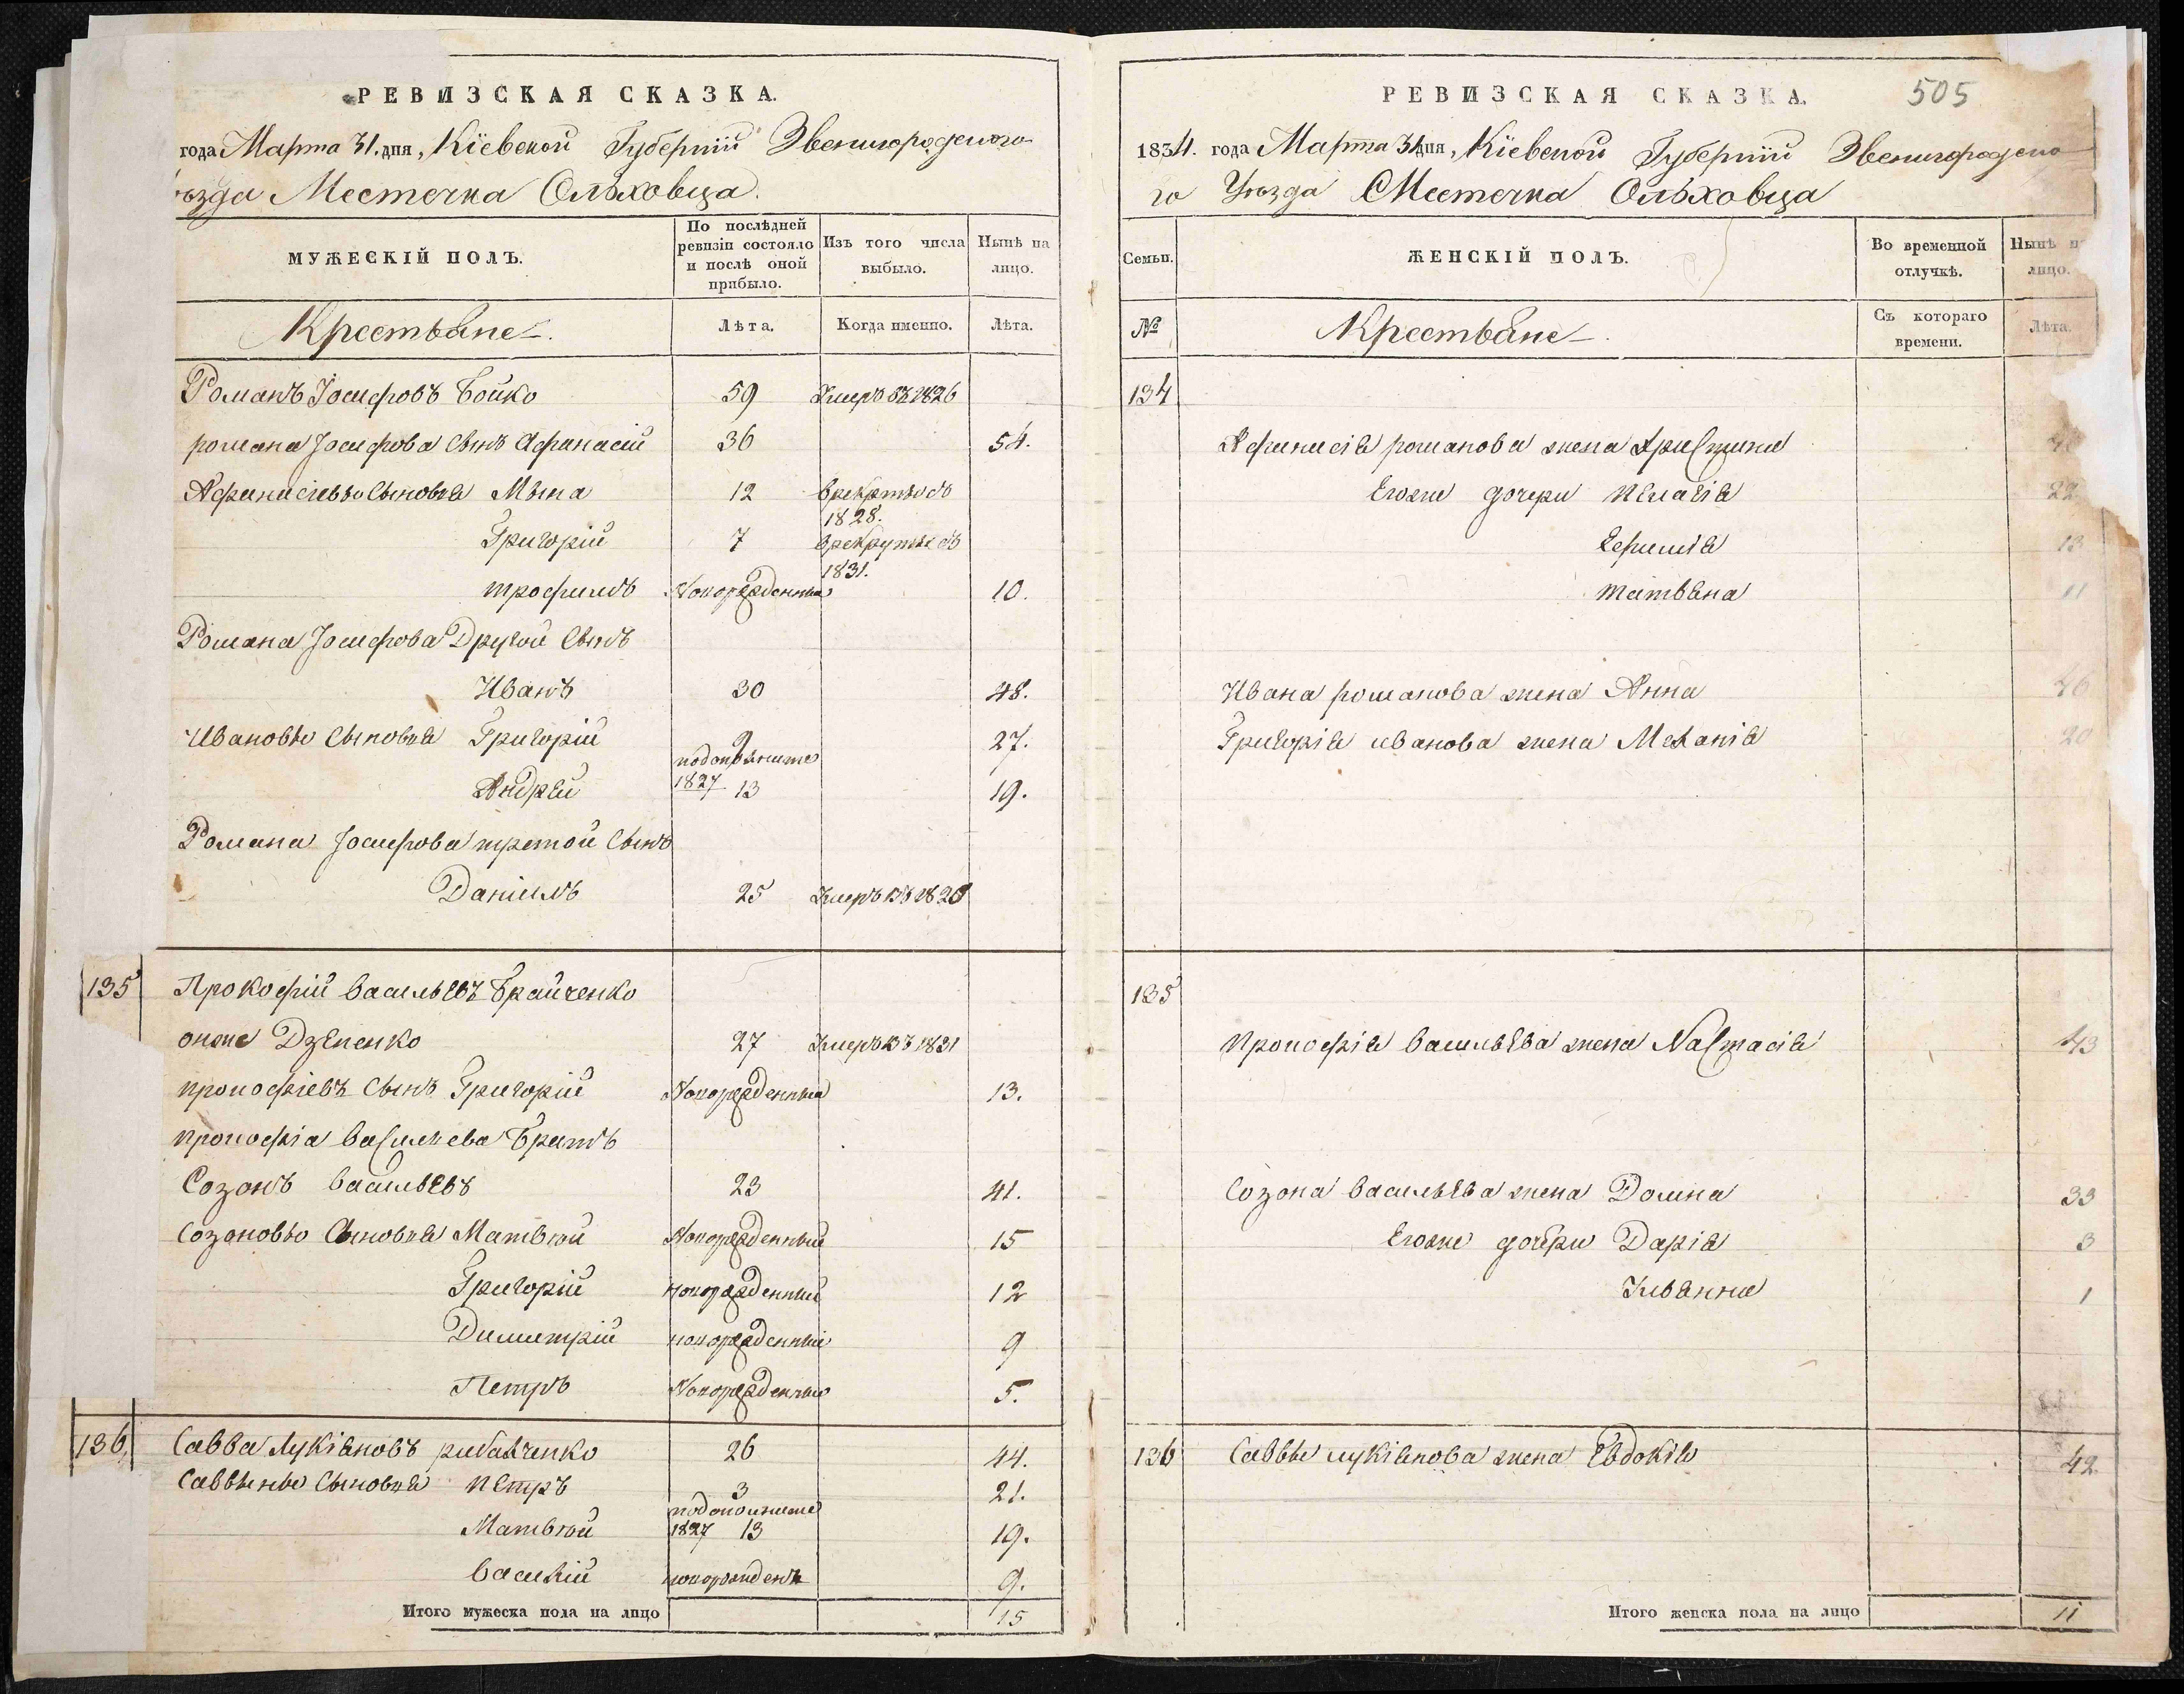 РЕВИЗСКАЯ СКАЗКА.
года Марта 31. дня, Кіевской Губерніи Звенигородского
ѣзда Местечка Ольховца.
МУЖЕСКІЙ ПОЛЪ.
По послѣдней ревизіи состояло и послѣ оной прибыло.
Изъ того числа выбыло.
Нынѣ на лицо.
Крестьяне
Лѣта.
Когда именно.
Лѣта.
Романъ Іосифовъ Бойко 59 Умеръ въ 1826
романа Іосифова Сынъ Афанасій 36 54.
Афанасіевы Сыновья 12 врекруты въ
1828.
Григорій 7 врекруты въ
1831.
трофимъ Новорожденны 10.
Романа Іосифова Другой Сынъ
Иванъ 30 48.
Ивановы Сыновья Григорій 9 27.
Андрей 1827 13 19.
Романа Іосифова третой Сынъ
Даніилъ 25 Умеръ въ
135 Прокофій васильевъ Брайченко
онже 27 Умеръ въ 1831
прокофіевъ Сынъ Григорій Новорожденны 13.
прокофіа василиева Братъ
Созонъ васильевъ 23 41.
Созоновы Сыновья Матвѣй Новорожденный 15
Григорій новорожденный 12
Димитрій новорожденный 9
Петръ Новорожденны 5.
136. Савва Лукіяновъ 26 44.
Саввины Сыновья петръ 3 21.
Матвѣй 1827 13 19.
василій новорожденъ 9.
Итого мужеска пола на лицо 15
РЕВИЗСКАЯ СКАЗКА.
505
1834. года Марта 31 дня, Кіевской Губерніи Звенигородско
го Уѣзда Местечка Ольховца
Семьи.
ЖЕНСКІЙ ПОЛЪ.
Во временной отлучкѣ.
Нынѣ на лицо.
№
Крестьяне
Съ котораго времени.
Лѣта.
134
Афанасія романова жена христина
Егоже дочери пелагія 22
Ефимія 13
татьяна 11
Ивана романова жена Анна 46
Григорія иванова жена Меланія 20
135
прокофія васильева жена Настасія 43
Созона васильева жена Домна 33
Егоже дочери Дарія 3
Ульянна 1
136 Саввы лукіянова жена Евдокія 42
Итого женска пола на лицо 11